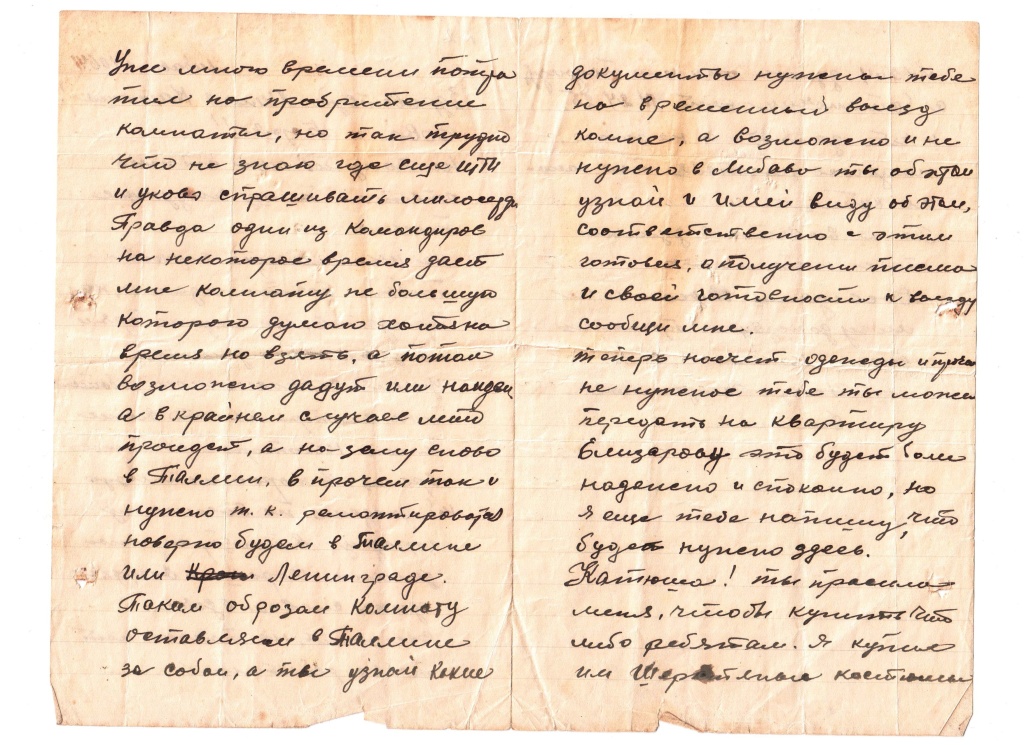 Уже много времени потра
тил на приобритение
комнаты, но так трудно
что не знаю где еще итти
и уково спрашивать милосерди
Правда один из Командиров
на некоторое время дает
мне комнату не большую
которою думаю хотя на
время но взять, а потом
возможно дадут или найдем
а в крайнем случае лето
проидет, а на зиму снова
в Таллин, в прочем так и
нужно т. к. ремонтироватся
наверно будем в Таллине
или Ленинграде.
Таким образом комнату
оставляем в Таллине
за собои, а ты узнай какие
документы нужны тебе
на временный выезд
комне, а возможно и не
нужно в Либаво ты об этом
узнай и имей виду об этом,
соответственно с этим
готовся, о получении писма
и своей готовности к выезду
сообщи мне.
теперь насчет одежды и прочее
не нужное тебе ты можеш
передать на квартиру
Елизарову это будет боле
надежно и спокоино, но
я еще тебе напишу, что
будет нужно здесь.
Катюша! ты просила
меня, чтобы купить что
либо ребятам. я купил
им Шерстяные костюмы